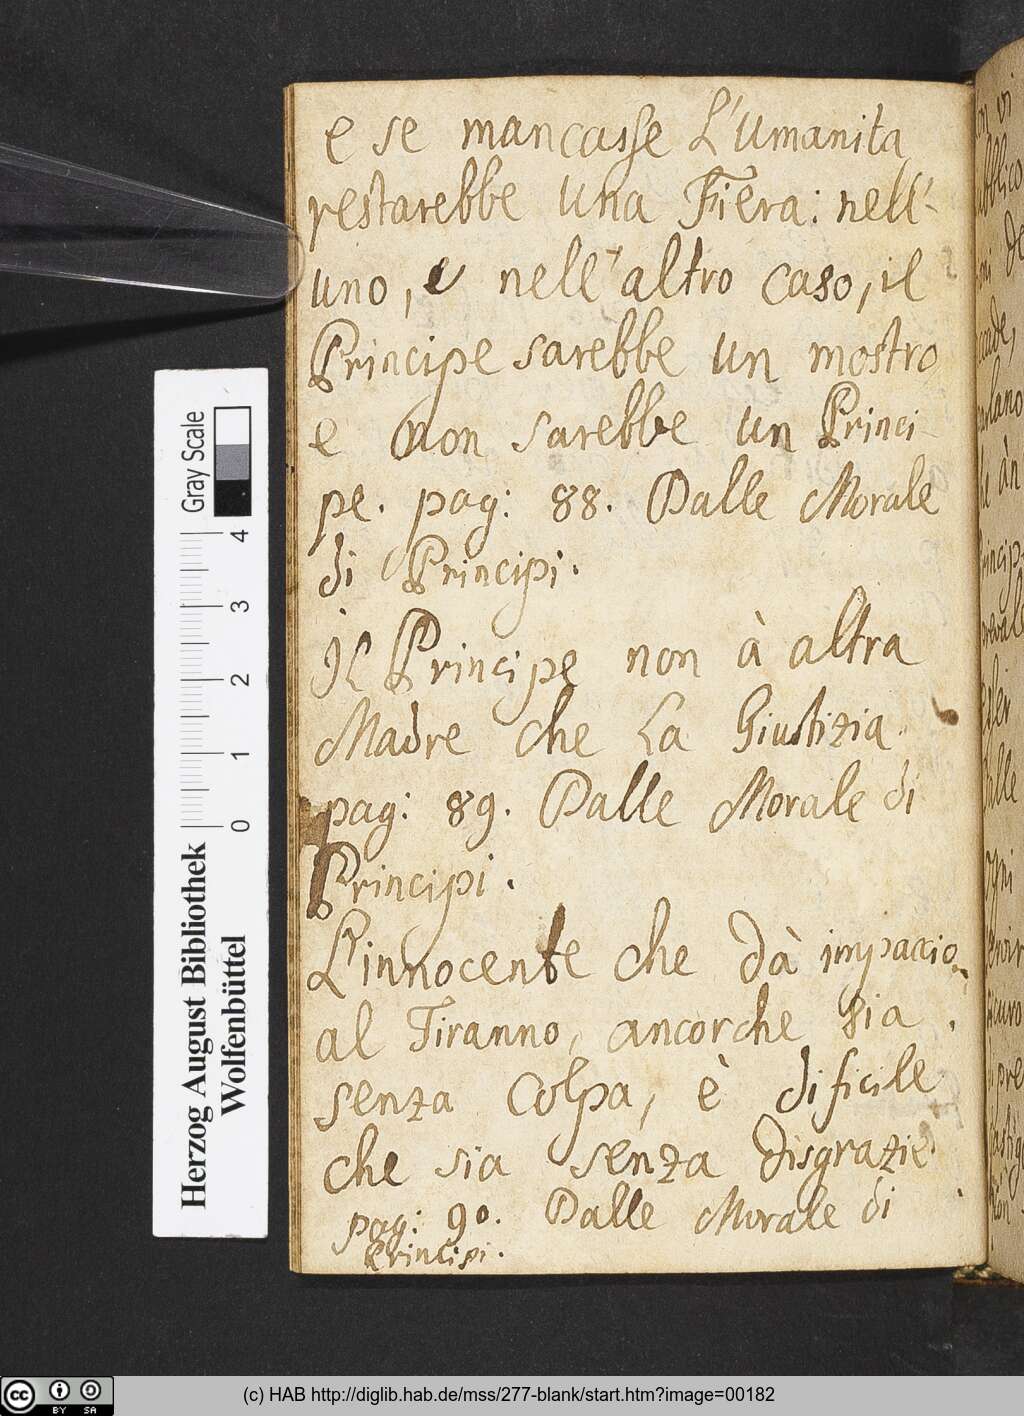 e se mancasse L'umanita
restarebbe una Fiera: nell'
uno, e nell'altro caso, il
Principe sarebbe un mostro
e non sarebbe un Princi
pe. pag: 88. Dalle Morale
di Principi.
Il Principe non à altra
Madre che La Giustizia.
pag: 89. Dalle Morale di
Principi.
L'innocente che dà impaccio
al Tiranno, ancorche sia
senza colpa, è dificile
che sia senza disgrazie.
pag: 90. Dalle Morale di
Principi.
Gray Scale
4
3
2
1
0
Herzog August Bibliothek
Wolfenbüttel
(c) HAB http://diglib.hab.de/mss/277-blank/start.htm?image=00182
cc BY SA